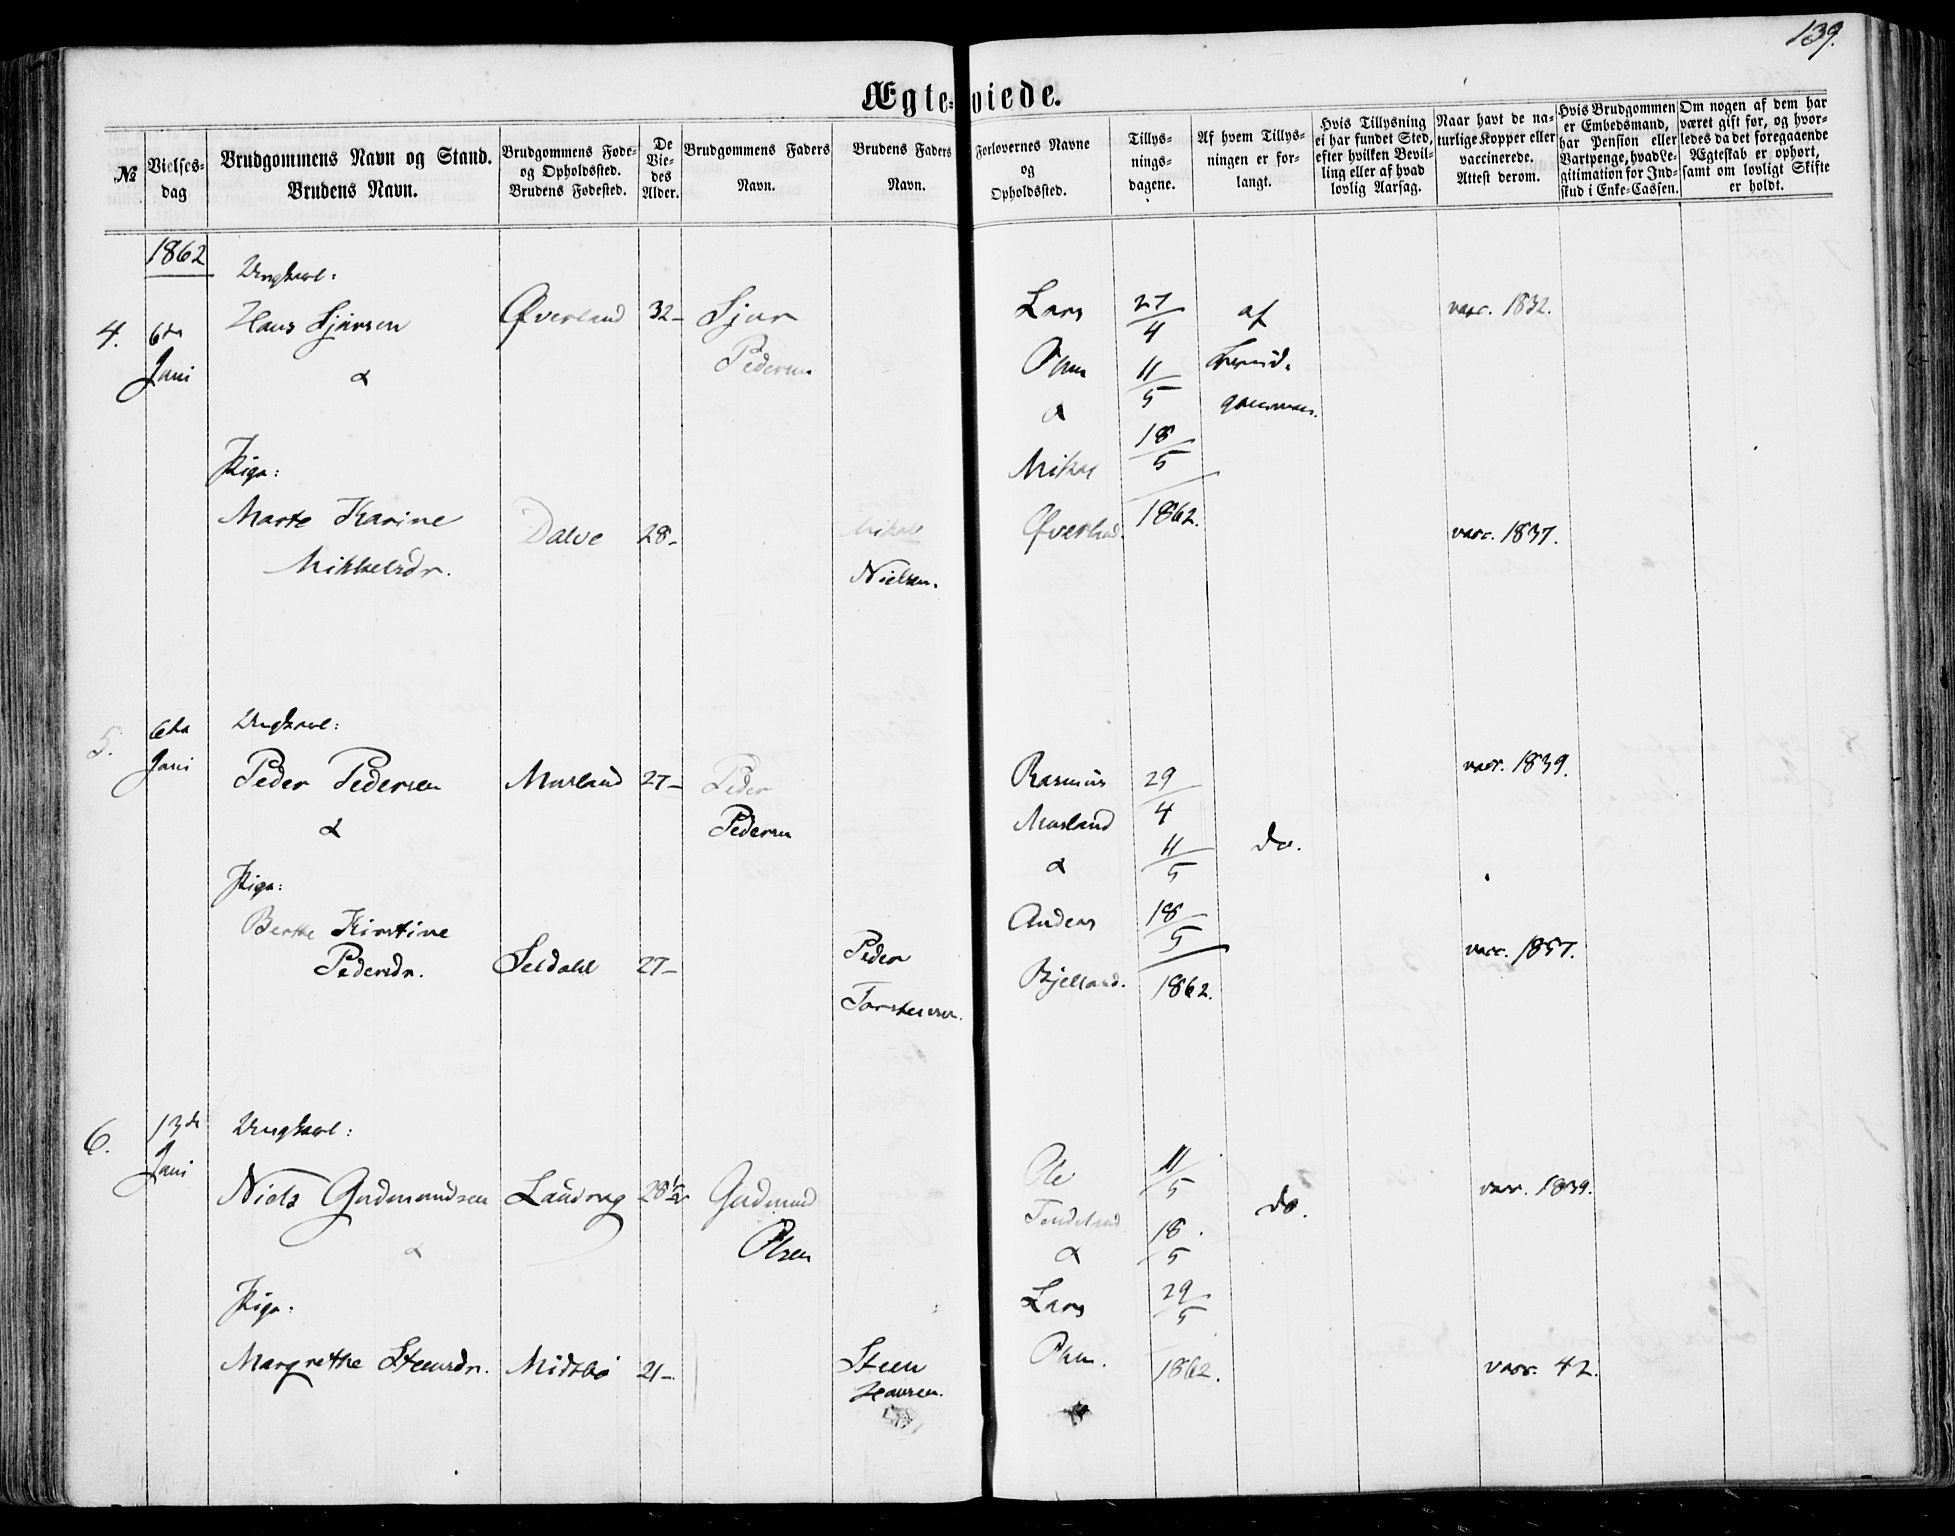 139.
Ægte-viede.
№
Vielses-
dag
Brudgommens Navn og Stand.
Brudens Navn.
Brudgommens Føde-
og Opholdssted.
Brudens Fødested.
De
Vie-
des
Alder.
Brudgommens Faders
Navn.
Brudens Faders
Navn.
Forlovernes Navne
og
Opholdssted.
Tillys-
nings-
dagene.
Af hvem Tillys-
ningen er for-
langt.
Hvis Tillysning
ei har fundet Sted,
efter hvilken Bevil-
ling eller af hvad
lovlig Aarsag.
Naar havt de na-
turlige Kopper eller
vaccinerede.
Attest derom.
Hvis Brudgommen
er Embedsmand,
har Pension eller
Vartpenge, hvad Le-
gitimation for Ind-
skud i Enke-Cassen.
Om nogen af dem har
været gift før, og hvor-
ledes da det foregaaende
Ægteskab er ophørt,
samt om lovligt Skifte
er holdt.
1862
4.
6te
Juni
Ungkarl:
Hans Sjursen
&
Pige:
Marte Karine
Mikkelsdr.
Øverland
Dalve
32-
28-
Sjur
Pedersen
Mikal
Nielsen.
Lars
&
Mikal
Øverland.
27/4
11/5
18/5
1862.
af
vacc. 1832.
vacc. 1837.
5.
6te
Juni
Ungkarl:
Peder Pedersen
&
Pige:
Berthe Kirstine
Pedersdr.
Musland
Seldahl
27-
27-
Peder
Pedersen
Peder
Torstensen.
Rasmus
Musland
&
Anders
Bjelland.
29/4
11/5
18/5
1862.
do.
vacc. 1839.
vacc. 1857.
6.
13de
Juni
Ungkarl:
Niels Gudmundsen
&
Pige:
Margrethe Steensdr.
Midsbø
28½
21-
Gudmund
Olsen
Steen
Hansen.
Ole
&
Lars
11/5
18/5
29/5
1862.
do.
vacc. 1839.
vacc. 42.